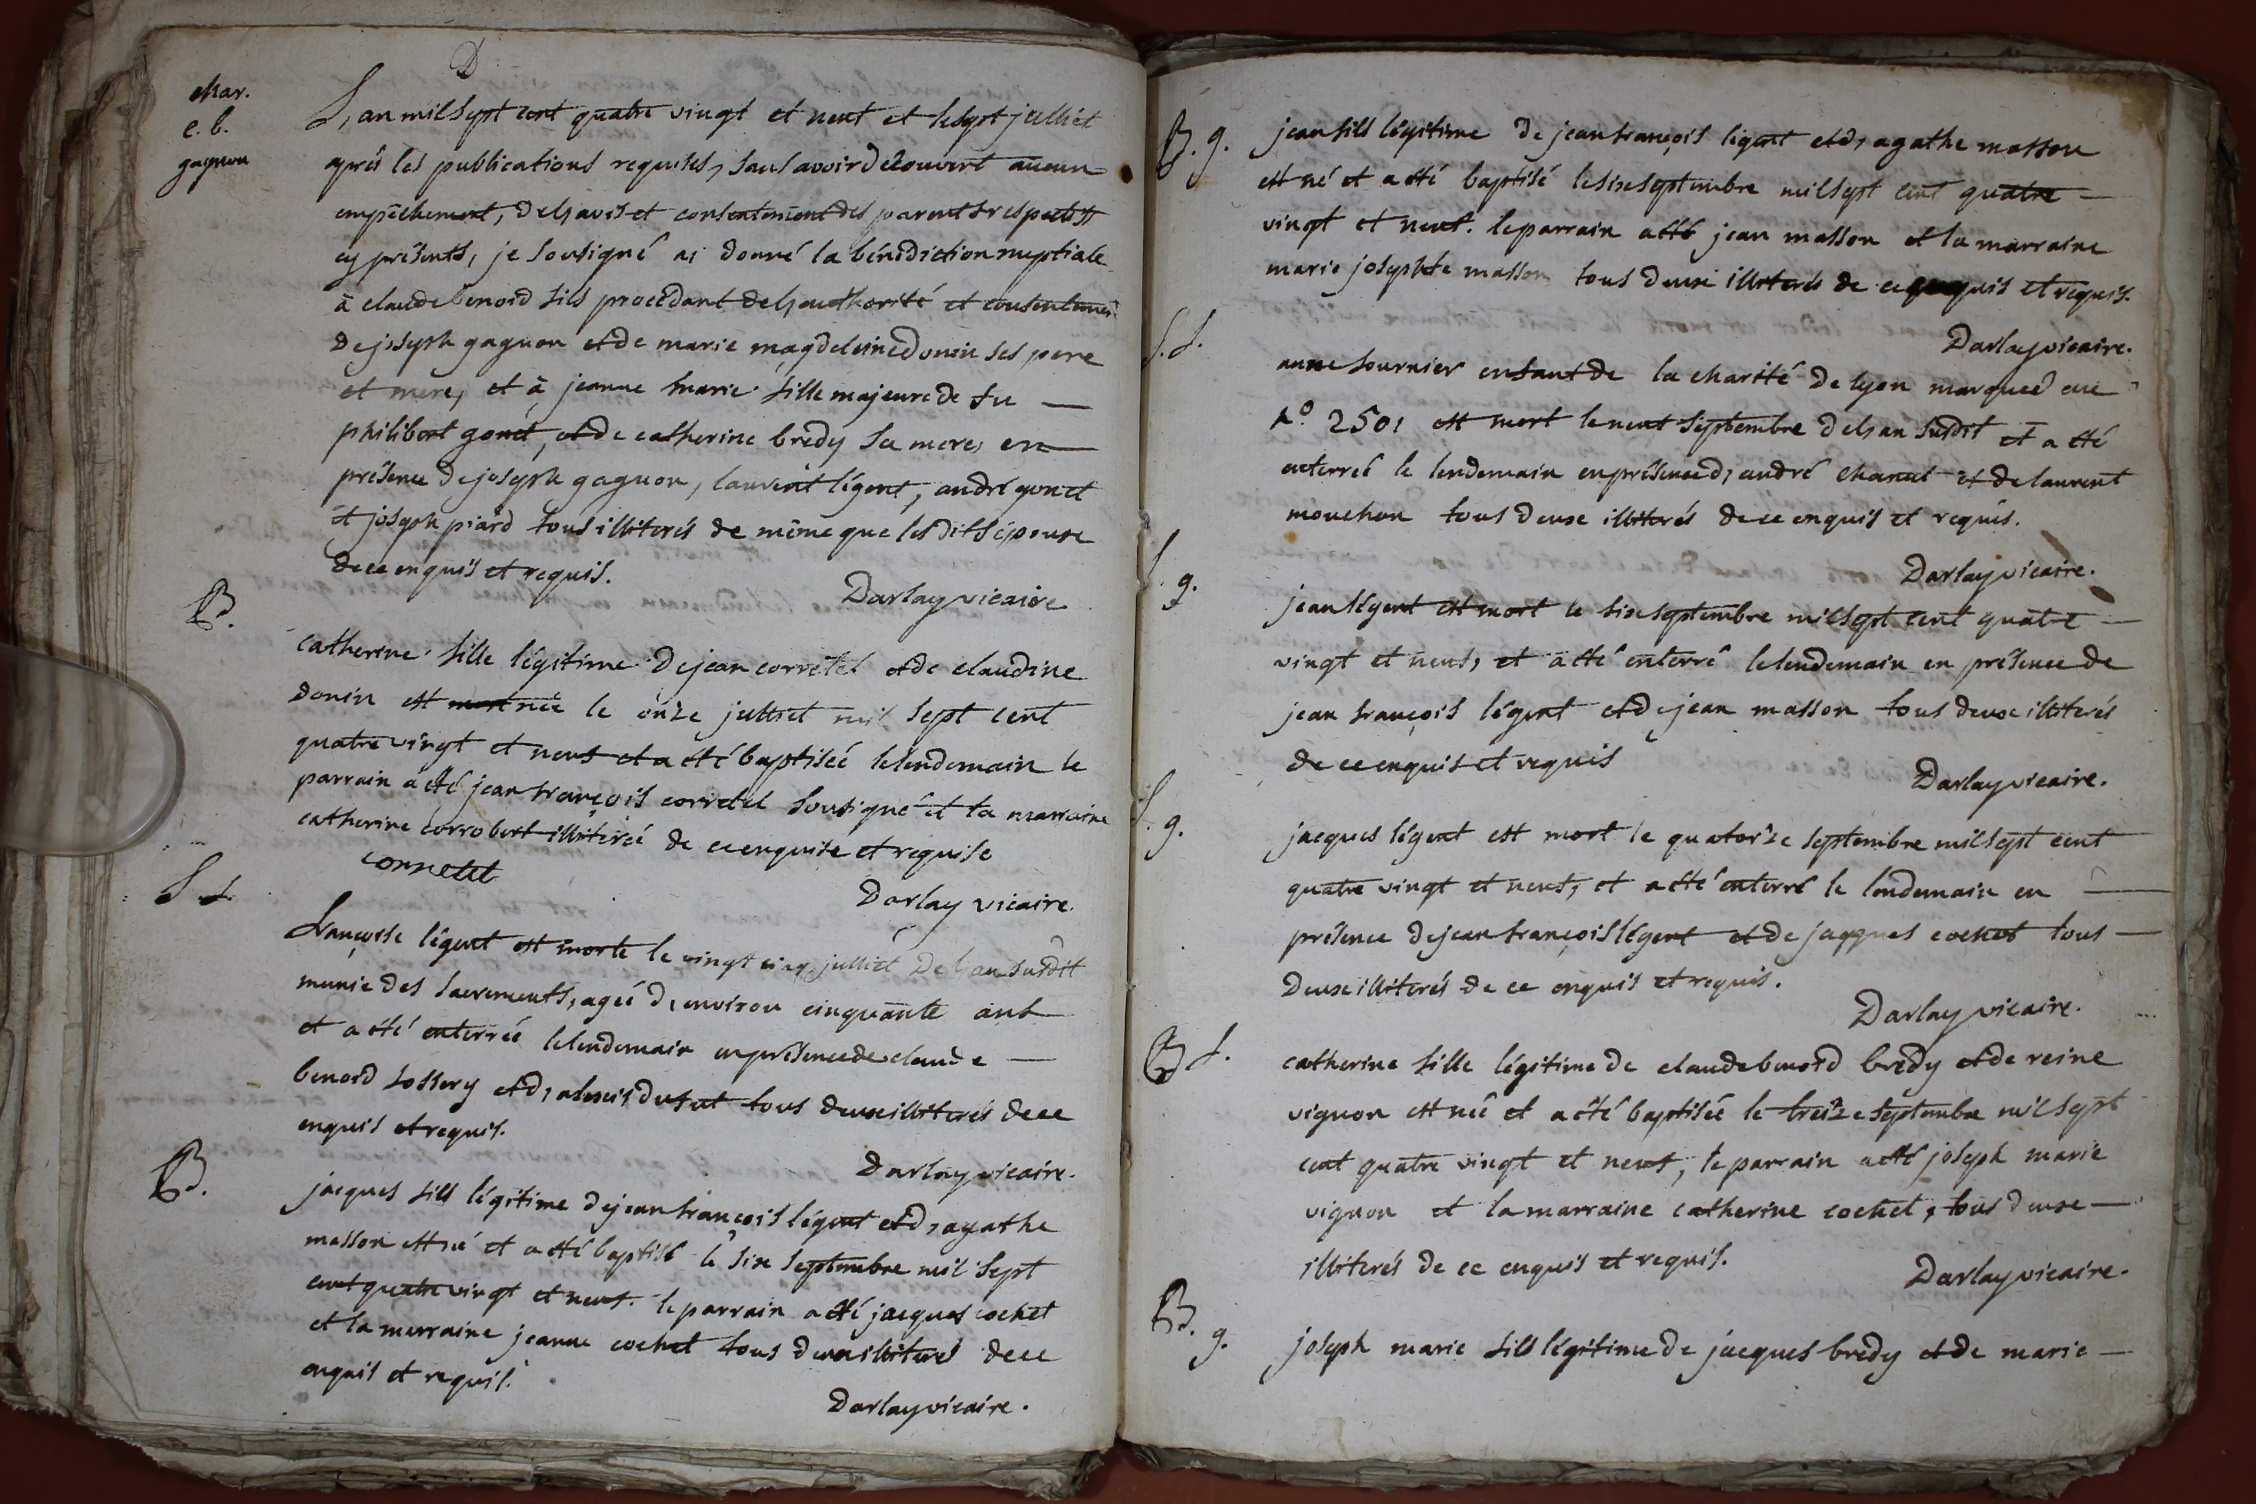 D
Mar.
c. b.
gagnon
L, an mil sept cent quatre vingt et neuf et le sept julliet
après les publications requises, sans avoir découvert aucun
empêchement, de l,avis et consentement des parents respectifs
cy présents, je sousigné ai donné la bénédiction nuptiale
à claude benoid fils procédant de l,authorité et consentement
de joseph gagnon et de marie magdeleine donin ses pere
et mere, et à jeanne marie fille majeure de fu —
philibert gonet, et de catherine bredy sa mere, en —
présence de joseph gagnon, laurent légent, andré gonet
et joseph piard tous illiterés de même que les dits époux
de ce enquis et requis.
Darlay vicaire
B.
catherine fille légitime de jean corretel et de claudine
donin est née le onze julliet mil sept cent
quatre vingt et neuf et a été baptisée le lendemain le
parrain a été jean françois corretel sousigné et la marraine
catherine corrobert illiterée de ce enquise et requise
corretel
Darlay vicaire.
S. f.
françoise légent est morte le vingt cinq julliet de l,an susdit
munie des sacrements, agée d,environ cinquante ans
et a été enterrée le lendemain en présence de claude —
benoid et d,alexis dufut tous deux illiterés de ce
enquis et requis.
Darlay vicaire.
B.
jacques fils légitime de jean françois légent et d,agathe
masson est né et a été baptisé le six septembre mil sept
cent quatre vingt et neuf. le parrain a été jacques cochet
et la marraine jeanne cochet tous deux illiterés de ce
enquis et requis.
Darlay vicaire.
B. g.
jean fils légitime de jean françois légent et d,agathe masson
est né et a été baptisé le six septembre mil sept cent quatre —
vingt et neuf. le parrain a été jean masson et la marraine
marie josephte masson tous deux illiterés de ce enquis et requis.
Darlay vicaire.
S. f.
anne fournier enfant de la charité de lyon marquée au
N.o 2501 est mort le neuf septembre de l,an susdit et a été
enterrée le lendemain en présence d,andré chanel et de laurent
mouchon tous deux illiterés de ce enquis et requis.
Darlay vicaire.
S. g.
jean légent est mort le six septembre mil sept cent quatre —
vingt et neuf, et a été enterré le lendemain en présence de
jean françois légent et de jean masson tous deux illiterés
de ce enquis et requis
Darlay vicaire.
S. g.
jacques légent est mort le quatorze septembre mil sept cent
quatre vingt et neuf, et a été enterré le lendemain en —
présence de jean françois légent et de jacques cochet tous —
deux illiterés de ce enquis et requis.
Darlay vicaire.
B f.
catherine fille légitime de claude benoid bredy et de reine
vignon est née et a été baptisée le treize septembre mil sept
cent quatre vingt et neuf, le parrain a été joseph marie
vignon et la marraine catherine cochet, tous deux —
illiterés de ce enquis et requis.
Darlay vicaire.
B. g.
joseph marie fils légitime de jacques bredy et de marie —